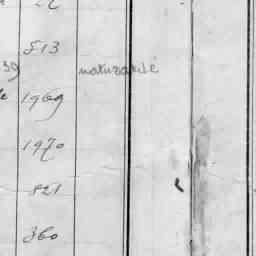 513
39 naturalisé
1969
1970
821
360